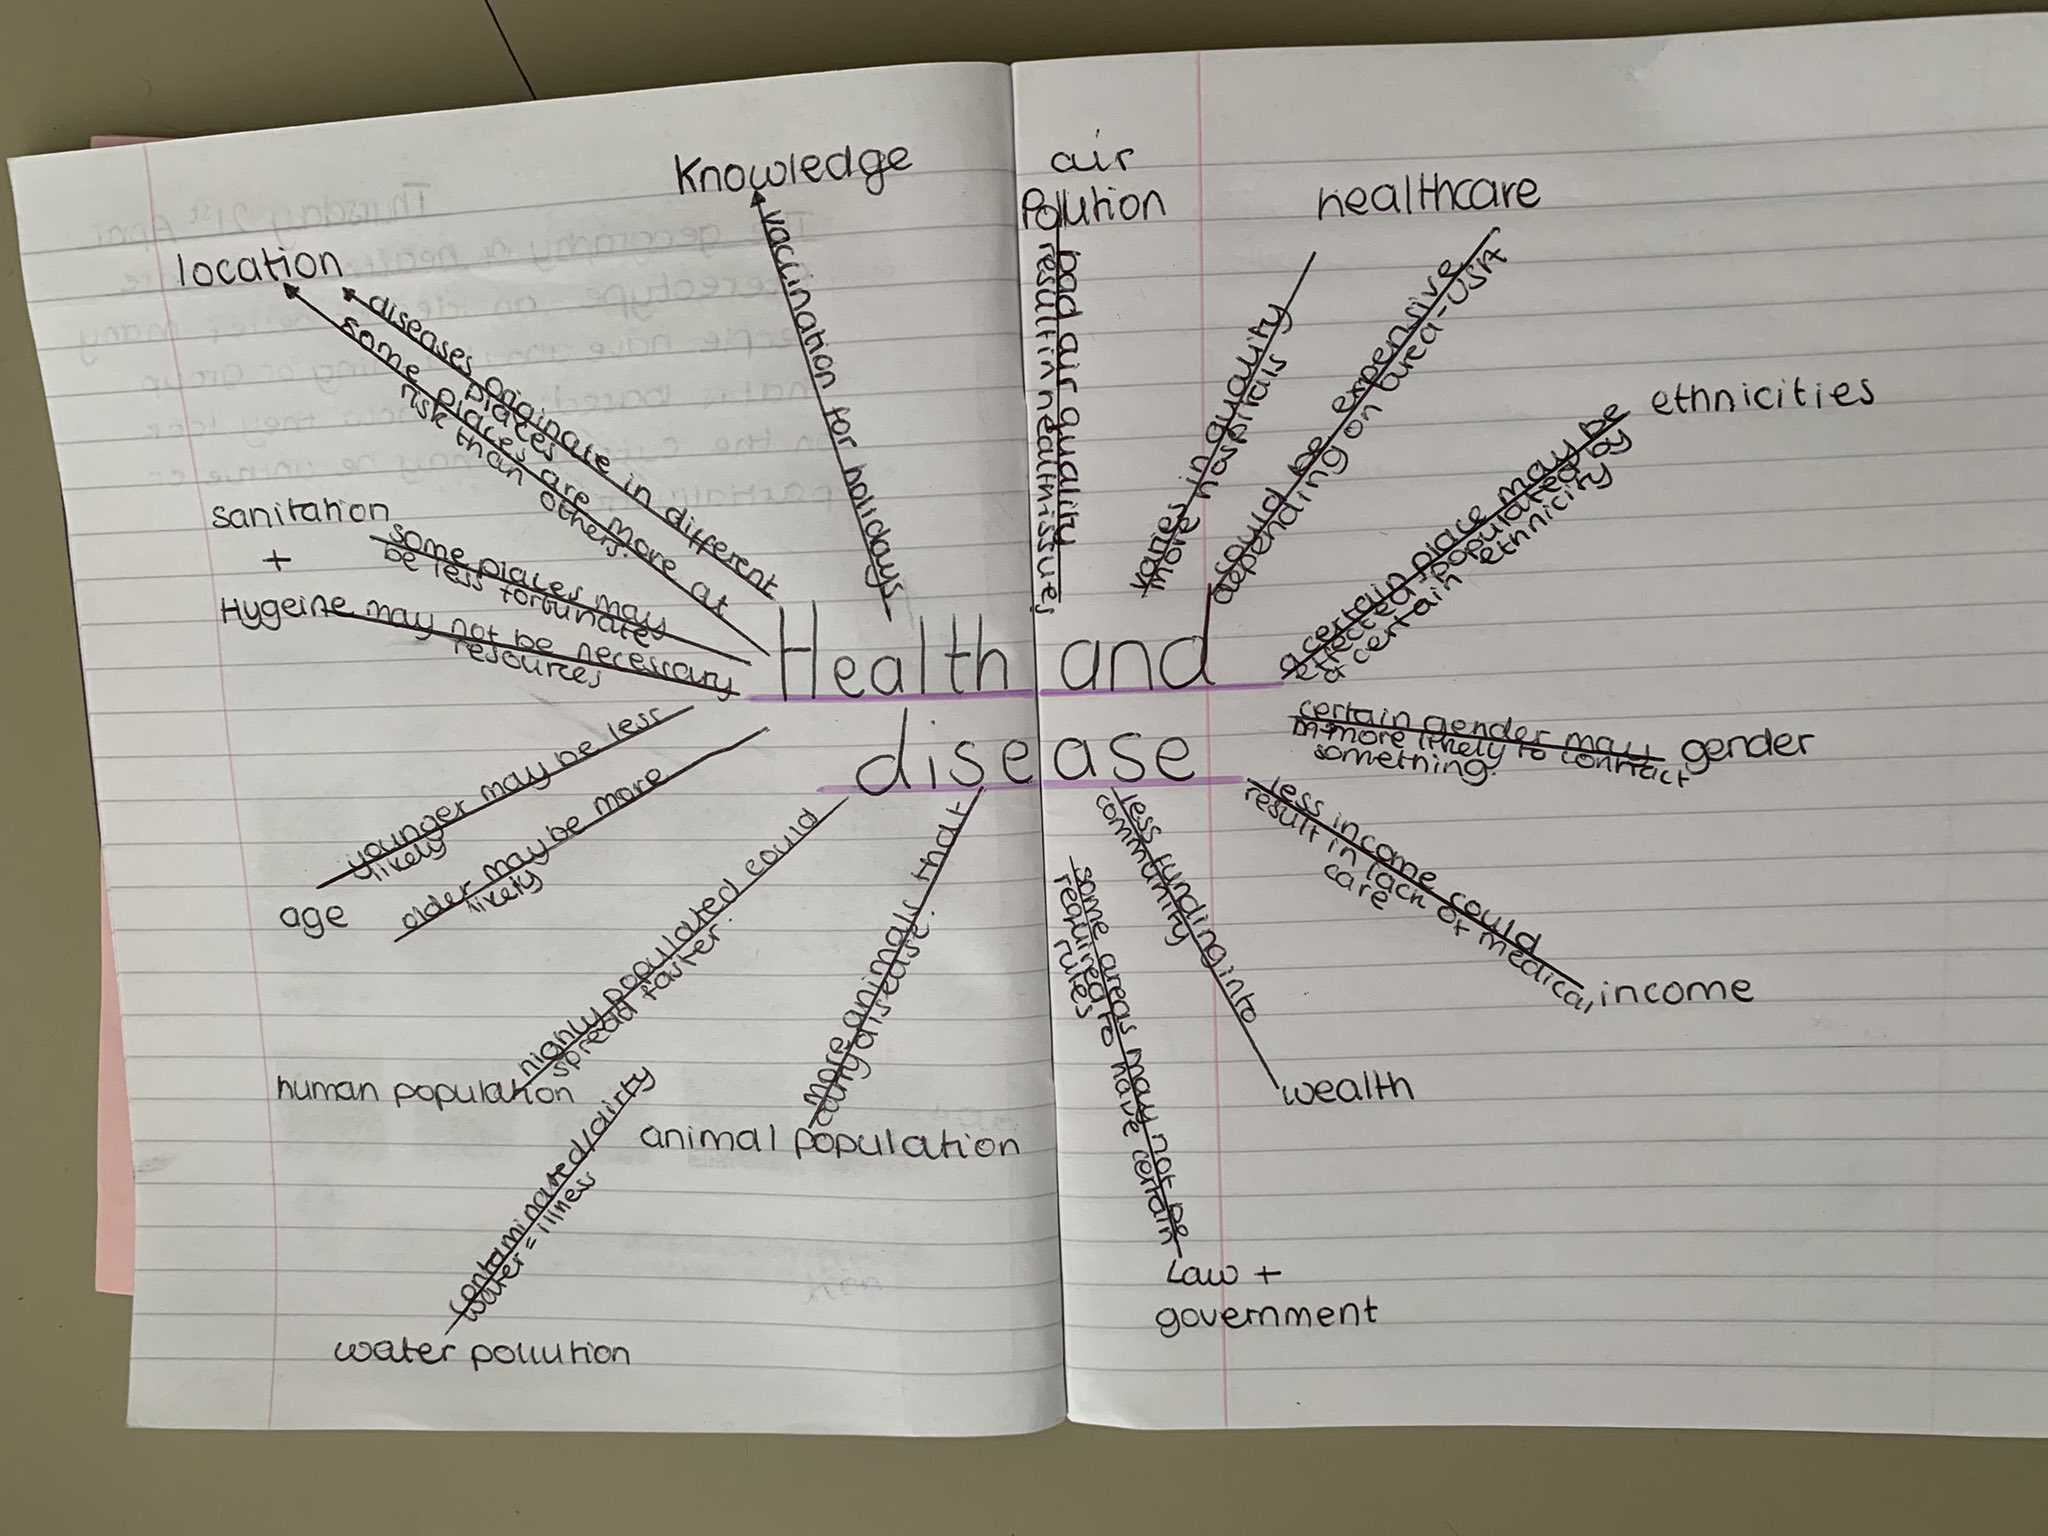 Knowledge
vaccination for holidays
air
Pollution
bad air quality
result in health issues
healthcare
varies in quality
more hospitals
could be expensive
depending on area-USA
ethnicities
a certain place may be
effected populated by
a certain ethnicity
location
diseases originate in different
places
some places are more at
risk than others.
sanitation
+
Hygeine
some places may
be less fortunate
may not be necessary
resources
Health and
disease
certain gender may
more likely to contract
something.
gender
younger may be less
likely
older may be more
likely
age
less income could
result in lack of medical
care
income
highly populated could
spread faster.
human population
more animals that
carry disease.
animal population
less funding into
community
wealth
contaminated/dirty
water = illness
water pollution
some areas may not be
required to have certain
rules
Law +
government